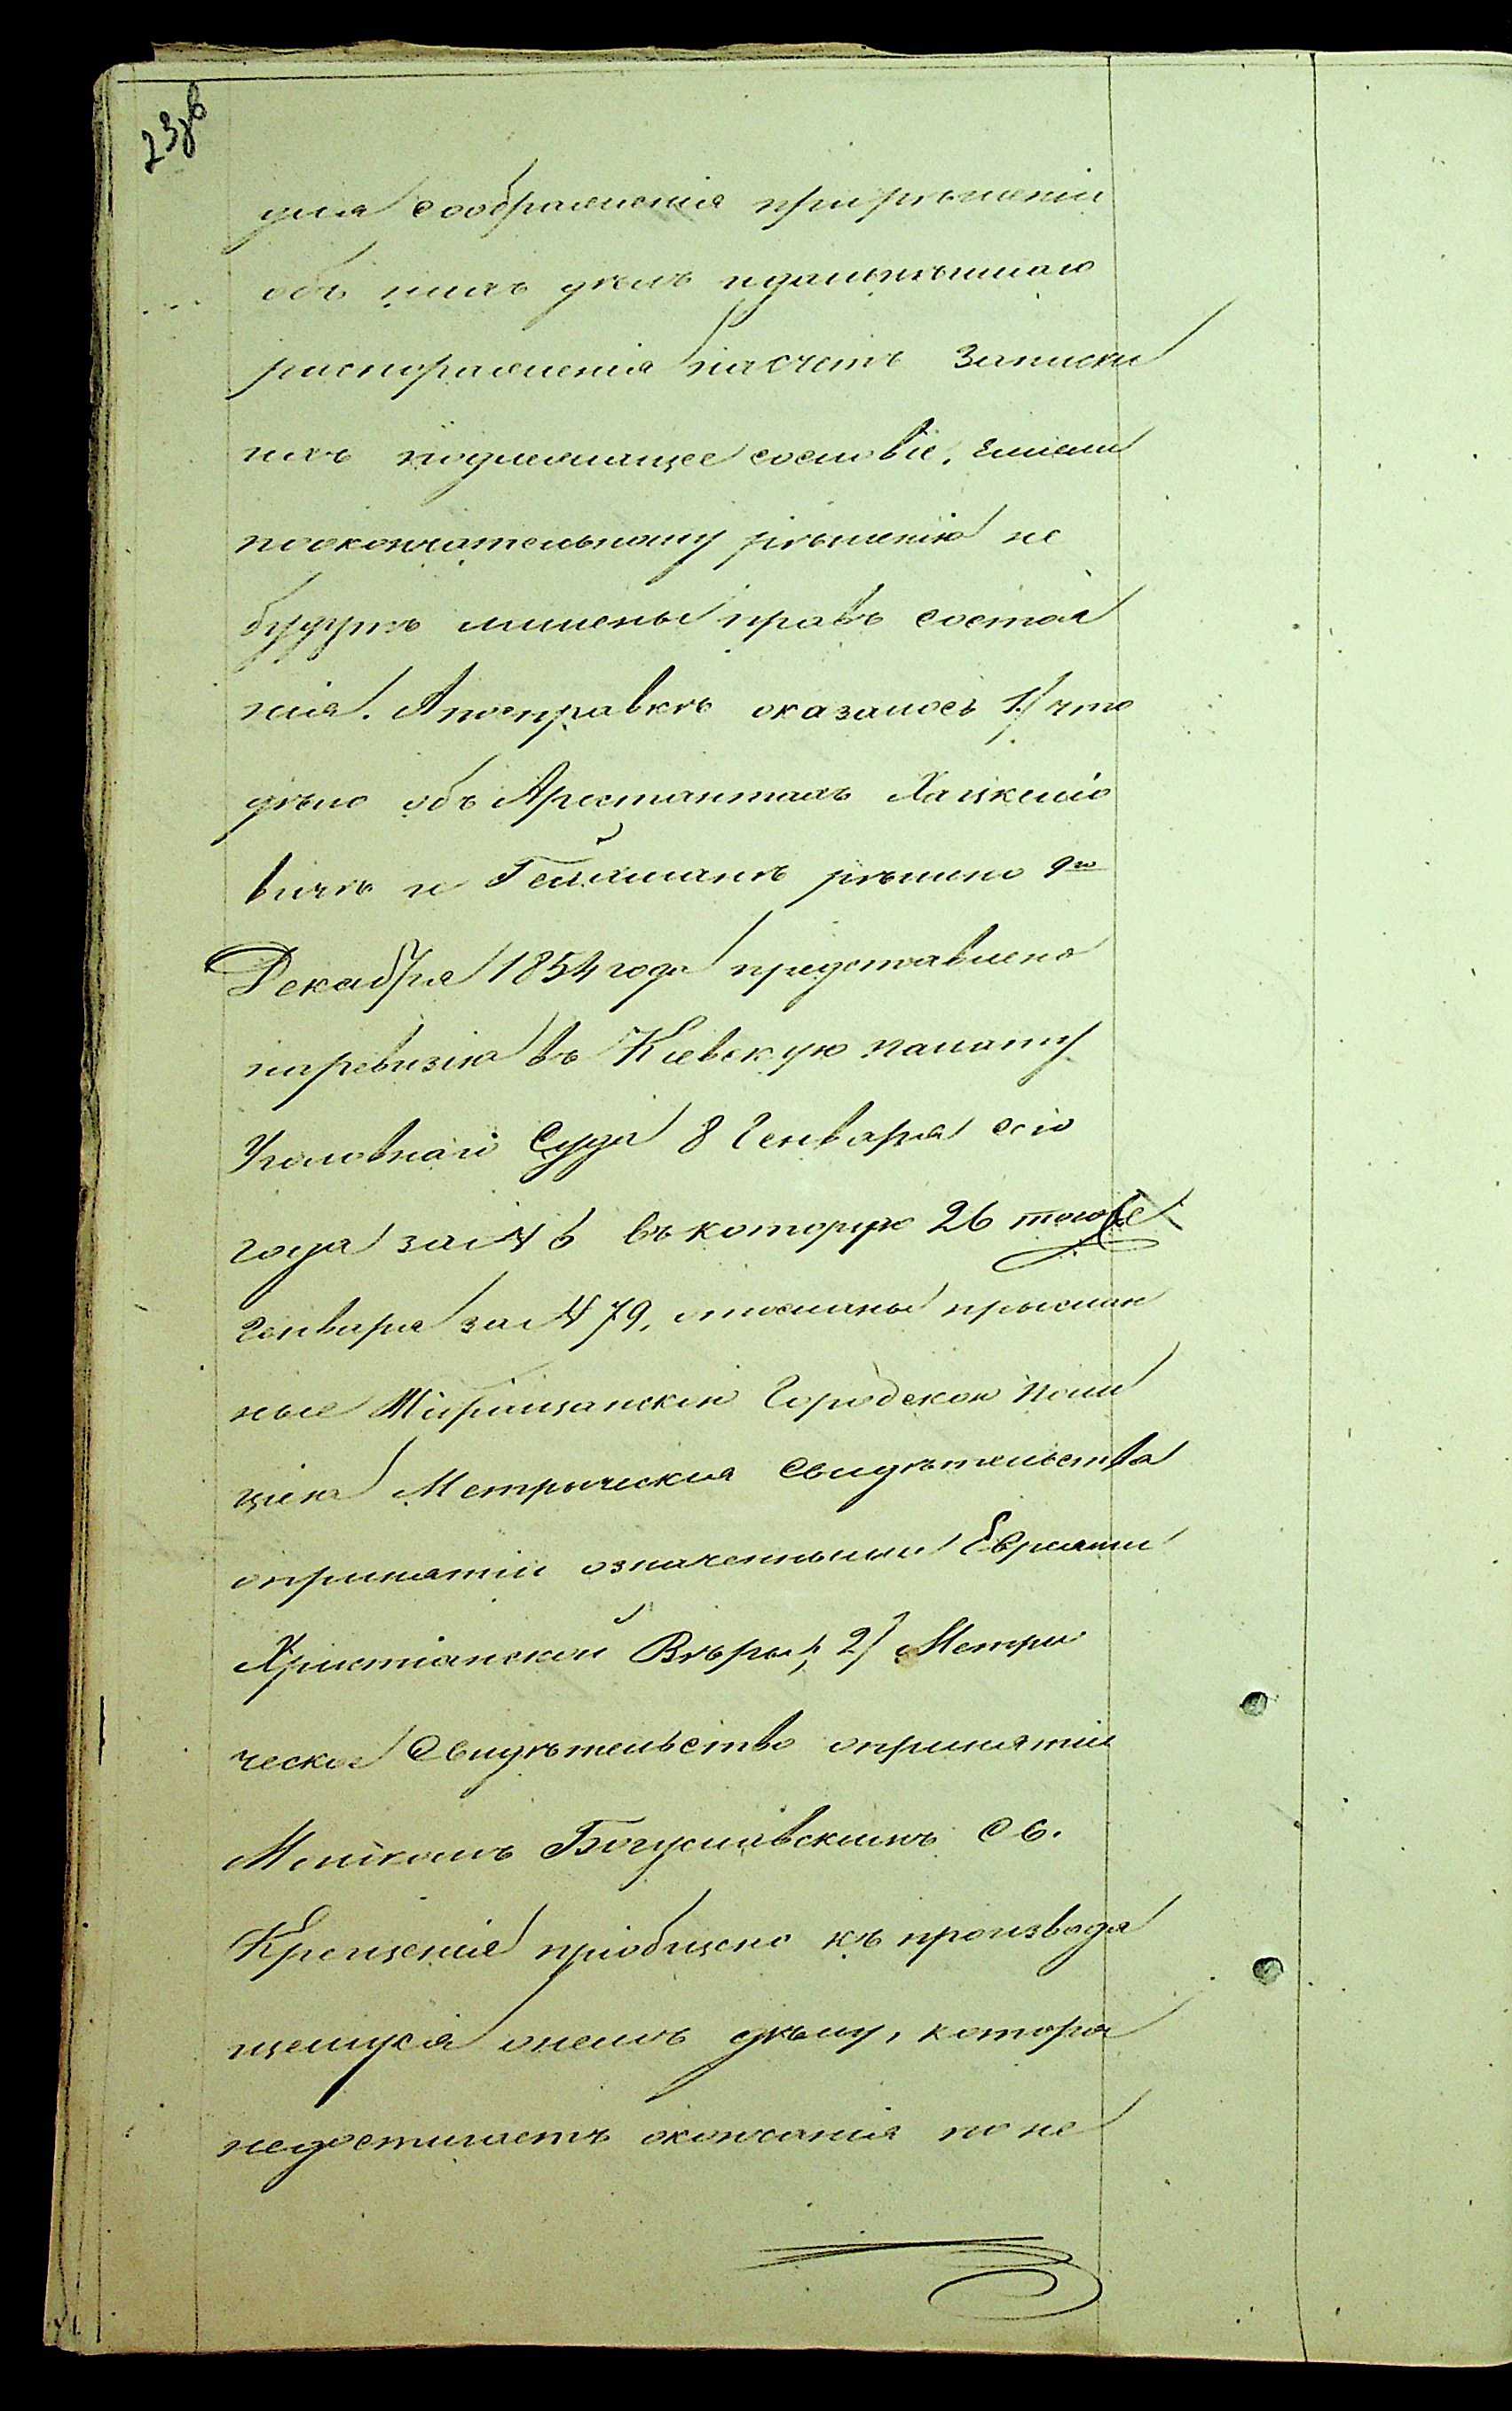 23об
для соображенія при рѣшеніи
объ нихъ дѣлъ и дальнѣйшаго
распоряженія насчетъ записки
ихъ въ подлежащее сословіе, если
по окончательному рѣшенію не
будутъ лишены правъ состоя
нія. А по справкѣ оказалось 1/ что
дѣло объ Арестантахъ Хацкелѣ
и Гейхманѣ рѣшено 9го
Декабря 1854 года представлено
на ревизію въ Кіевскую палату
Уголовнаго Суда 8 Генваря сего
года за № 6 въ которую 26 того же
Генваря за № 79, отосланы прислан
ные Городскою Поли
ціею Метрическія Свидѣтельства
о принятіи означенными Евреями
Христіанской Вѣры; 2/ Метри
ческое Свидѣтельство о принятіи
Богуславскимъ Св.
Крещенія пріобщено къ производя
щемуся о немъ дѣлу, которое
не достигаетъ окончанія по не